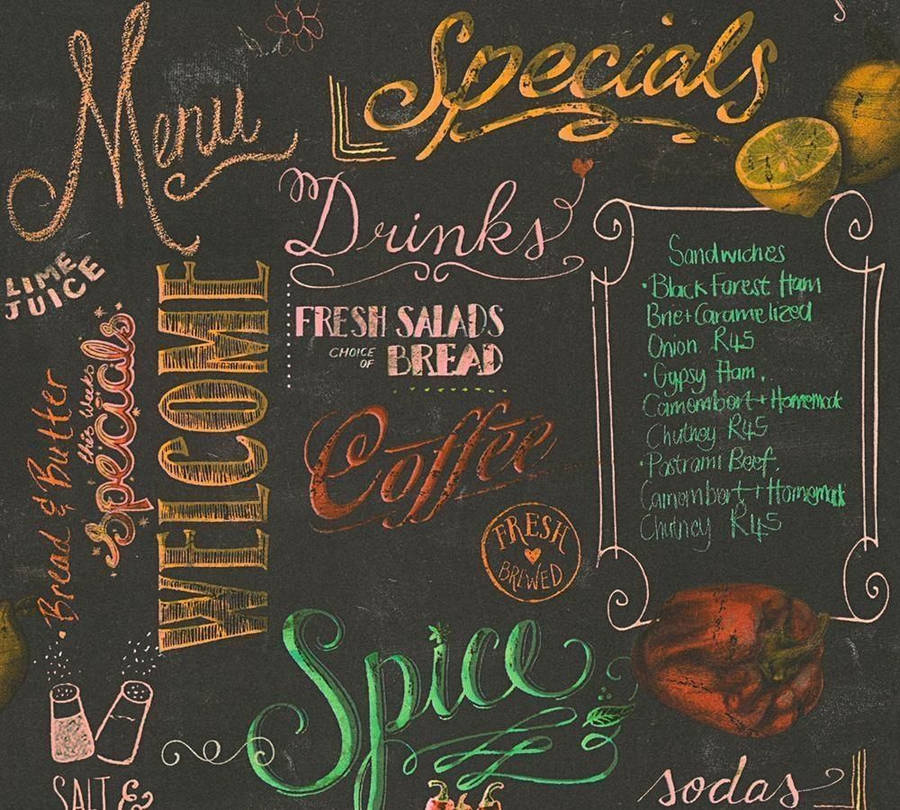 Menu
Specials
Drinks
LIME
JUICE
WELCOME
FRESH SALADS
CHOICE
OF
BREAD
this weeks
Specials
Bread & Butter
Coffee
FRESH
BREWED
Sandwiches
• Black Forest Ham
Brie + Caramelized
Onion R45
• Gypsy Ham,
Camombert + Homemade
Chutney R45
• Pastrami Beef,
Camombert + Homemade
Chutney R45
Spice
SALT &
sodas